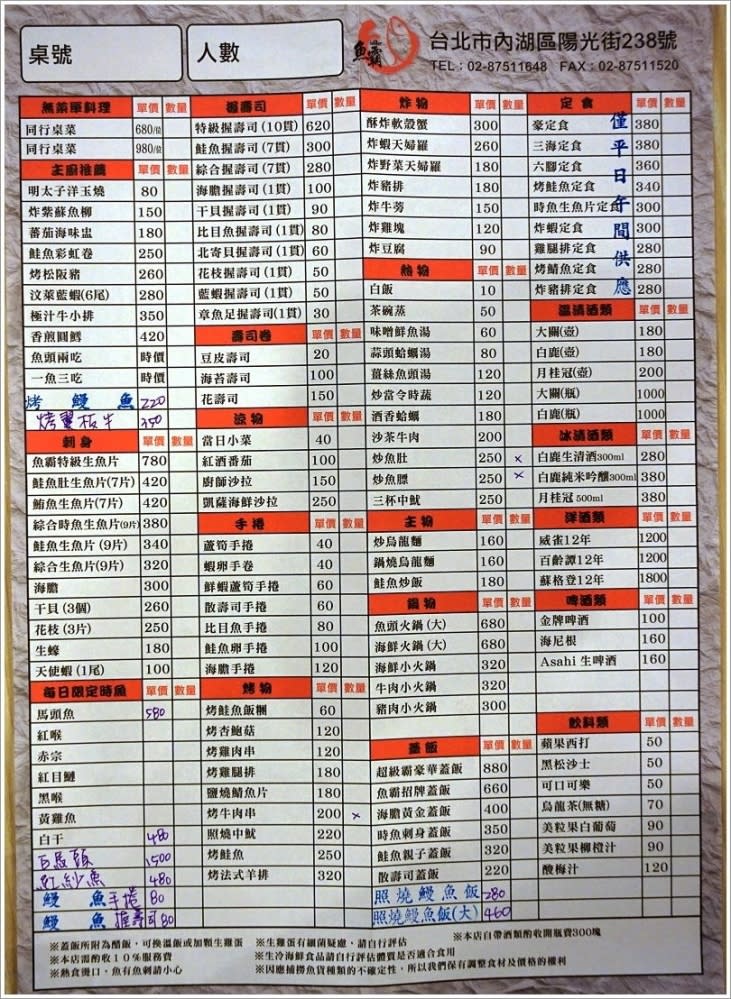 桌號
人數
魚霸
台北市內湖區陽光街238號
TEL：02-87511648 FAX：02-87511520
無菜單料理 單價 數量
同行桌菜 680/位
同行桌菜 980/位
主廚推薦 單價 數量
明太子洋玉燒 80
炸紫蘇魚柳 150
蕃茄海味盅 180
鮭魚彩虹卷 250
烤松阪豬 260
汶萊藍蝦(6尾) 280
極汁牛小排 350
香煎圓鱈 420
魚頭兩吃 時價
一魚三吃 時價
烤鰻魚 220
烤翼板牛 350
刺身 單價 數量
魚霸特級生魚片 780
鮭魚肚生魚片(7片) 420
鮪魚生魚片(7片) 420
綜合時魚生魚片(9片) 380
鮭魚生魚片(9片) 340
綜合生魚片(9片) 320
海膽 300
干貝(3個) 260
花枝(3片) 250
生蠔 180
天使蝦(1尾) 100
每日限定時魚 單價 數量
馬頭魚 580
紅喉
赤宗
紅目鰱
黑喉
黃雞魚
白干 480
白馬頭 1500
紅紗魚 480
鰻魚手捲 80
鰻魚握壽司 80
握壽司 單價 數量
特級握壽司(10貫) 620
鮭魚握壽司(7貫) 300
綜合握壽司(7貫) 280
海膽握壽司(1貫) 100
干貝握壽司(1貫) 90
比目魚握壽司(1貫) 80
北寄貝握壽司(1貫) 60
花枝握壽司(1貫) 50
藍蝦握壽司(1貫) 50
章魚足握壽司(1貫) 30
壽司卷 單價 數量
豆皮壽司 20
海苔壽司 100
花壽司 150
涼物 單價 數量
當日小菜 40
紅酒番茄 100
廚師沙拉 150
凱薩海鮮沙拉 250
手捲 單價 數量
蘆筍手捲 40
蝦卵手卷 40
鮮蝦蘆筍手捲 60
散壽司手捲 60
比目魚手捲 80
鮭魚卵手捲 100
海膽手捲 120
烤物 單價 數量
烤鮭魚飯糰 60
烤杏鮑菇 120
烤雞肉串 120
烤雞腿排 180
鹽燒鯖魚片 180
烤牛肉串 200 ×
照燒中魷 220
烤鮭魚 250
烤法式羊排 320
炸物 單價 數量
酥炸軟殼蟹 300
炸蝦天婦羅 260
炸野菜天婦羅 180
炸豬排 180
炸牛蒡 150
炸雞塊 120
炸豆腐 90
熱物 單價 數量
白飯 10
茶碗蒸 50
味噌鮮魚湯 60
蒜頭蛤蠣湯 80
薑絲魚頭湯 120
炒當令時蔬 120
酒香蛤蠣 180
沙茶牛肉 200
炒魚肚 250 ×
炒魚膘 250 ×
三杯中魷 250
主物 單價 數量
炒烏龍麵 160
鍋燒烏龍麵 160
鮭魚炒飯 180
鍋物 單價 數量
魚頭火鍋(大) 680
海鮮火鍋(大) 680
海鮮小火鍋 320
牛肉小火鍋 320
豬肉小火鍋 300
蓋飯 單價 數量
超級霸豪華蓋飯 880
魚霸招牌蓋飯 660
海膽黃金蓋飯 400
時魚刺身蓋飯 350
鮭魚親子蓋飯 320
散壽司蓋飯 220
照燒鰻魚飯 280
照燒鰻魚飯(大) 460
定食 單價 數量
豪定食 380
三海定食 380
六腳定食 360
烤鮭魚定食 340
時魚生魚片定食 300
炸蝦定食 300
雞腿排定食 280
烤鯖魚定食 280
炸豬排定食 280
僅平日午間供應
溫清酒類 單價 數量
大關(壺) 180
白鹿(壺) 180
月桂冠(壺) 200
大關(瓶) 1000
白鹿(瓶) 1000
冰清酒類 單價 數量
白鹿生清酒300ml 280
白鹿純米吟釀300ml 380
月桂冠 500ml 380
洋酒類 單價 數量
威雀12年 1200
百齡譚12年 1200
蘇格登12年 1800
啤酒類 單價 數量
金牌啤酒 100
海尼根 160
Asahi 生啤酒 160
飲料類 單價 數量
蘋果西打 50
黑松沙士 50
可口可樂 50
烏龍茶(無糖) 70
美粒果白葡萄 90
美粒果柳橙汁 90
酸梅汁 120
※蓋飯所附為醋飯，可換溫飯或加顆生雞蛋 ※生雞蛋有細菌疑慮、請自行評估 ※本店自帶酒類酌收開瓶費300塊
※本店需酌收10%服務費 ※生冷海鮮食品請自行評估體質是否適合食用
※熱食燙口，魚有魚刺請小心 ※因應捕撈魚貨種類的不確定性，所以我們保有調整食材及價格的權利